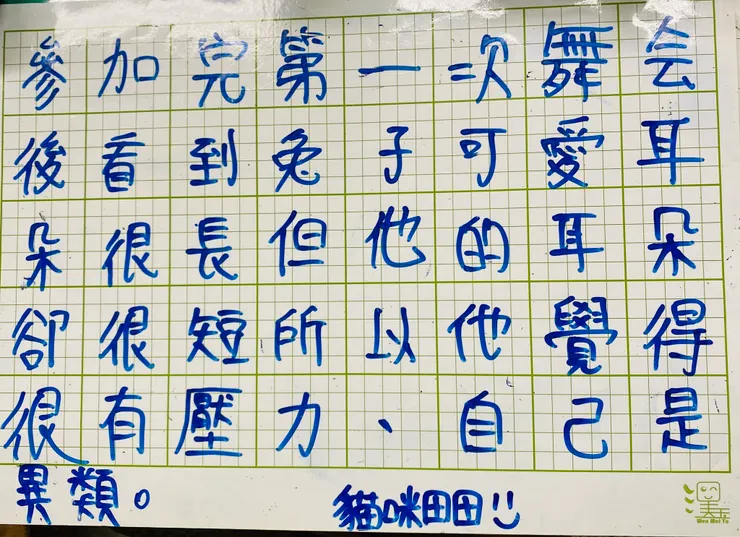 參加完第一次舞会
後看到兔子可愛耳
朵很長但他的耳朵
卻很短所以他覺得
很有壓力、自己是
異類。
貓咪田田